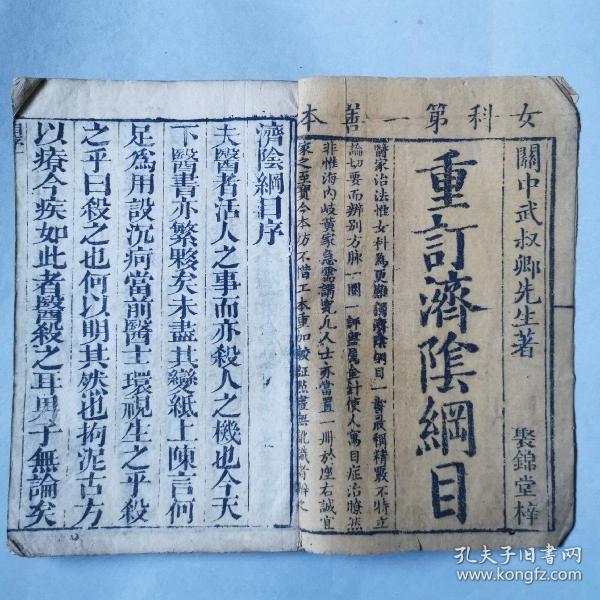 女科第一善本
關中武叔卿先生著
聚錦堂梓
重訂濟陰綱目
醫家治法惟女科為更難獨濟陰綱目一書最稱精嚴不特立
論切要而辨別方脉一圈一評盡屬金針使人寓目症治瞭然
非惟海內岐黃家急需講究凡人士亦當置一冊於座右誠宜
家之至寶今本坊不惜工本重加較証點畫無訛識者辨之
濟陰綱目序
夫醫者活人之事而亦殺人之機也今天
下醫書亦繁夥矣未盡其變紙上陳言何
足為用設沉疴當前醫士環視生之乎殺
之乎曰殺之也何以明其然也拘泥古方
以療今疾如此者醫殺之耳男子無論矣
孔夫子旧书网
kongfz.com